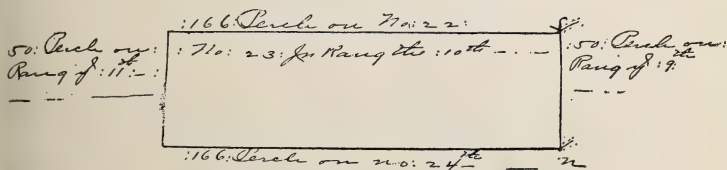 :166: Perch on No: 22:
S
50: Perch on:
Rang of: 11th -:
: No: 23: In Rang the :10th - . -
:50: Perch on:
Rang of :9th
:166: Perch on no: 24th
n